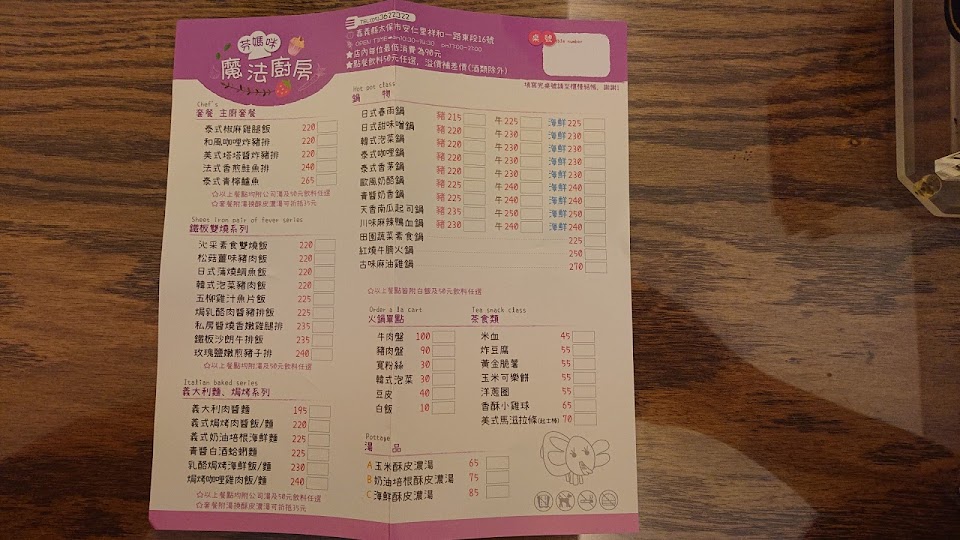 芬媽咪
魔法廚房
TEL:(05)3622322
嘉義縣太保市安仁里祥和一路東段16號
OPEN TIME
★店內每位最低消費為90元
★點餐飲料50元任選，溢價補差價(酒類除外)
桌號 table number
填寫完桌號請至櫃檯結帳，謝謝!
Chef's
套餐 主廚套餐
泰式椒麻雞腿飯 220
和風咖哩炸豬排 220
美式塔塔醬炸豬排 220
法式香煎鮭魚排 240
泰式青檸鱸魚 265
☆以上餐點均附公司湯及50元飲料任選
☆套餐附湯換酥皮濃湯可折抵35元
Sheos iron pair of fever series
鐵板雙燒系列
沁采素食雙燒飯 220
松菇薑味豬肉飯 220
日式蒲燒鯛魚飯 220
韓式泡菜豬肉飯 220
五柳雞汁魚片飯 225
焗乳酪肉醬豬排飯 225
私房醬燒香嫩雞腿排 235
鐵板沙朗牛排飯 235
玫瑰鹽嫩煎豬子排 240
☆以上餐點均附湯及50元飲料任選
Italian baked series
義大利麵、焗烤系列
義大利肉醬麵 195
義式焗烤肉醬飯/麵 220
義式奶油培根海鮮麵 225
青醬白酒蛤蜊麵 225
乳酪焗烤海鮮飯/麵 230
焗烤咖哩雞肉飯/麵 240
☆以上餐點均附公司湯及50元飲料任選
☆套餐附湯換酥皮濃湯可折抵35元
Hot pot class
鍋 物
日式春雨鍋 豬215 牛225 海鮮225
日式甜味噌鍋 豬220 牛230 海鮮230
韓式泡菜鍋 豬220 牛230 海鮮230
泰式咖哩鍋 豬220 牛230 海鮮230
泰式香茅鍋 豬220 牛230 海鮮230
歐風奶酪鍋 豬225 牛240 海鮮240
青醬奶香鍋 豬225 牛240 海鮮240
天香南瓜起司鍋 豬235 牛250 海鮮250
川味麻辣鴨血鍋 豬230 牛240 海鮮240
田園蔬菜素食鍋 225
紅燒牛腩火鍋 250
古味麻油雞鍋 270
☆以上餐點皆附白飯及50元飲料任選
Order a la cart
火鍋單點
牛肉盤 100
豬肉盤 90
寬粉絲 30
韓式泡菜 30
豆皮 40
白飯 10
Tea snack class
茶食類
米血 45
炸豆腐 55
黃金脆薯 55
玉米可樂餅 55
洋蔥圈 55
香酥小雞球 65
美式馬滋拉條(起士條) 70
Pottage
湯 品
A玉米酥皮濃湯 65
B奶油培根酥皮濃湯 75
C海鮮酥皮濃湯 85